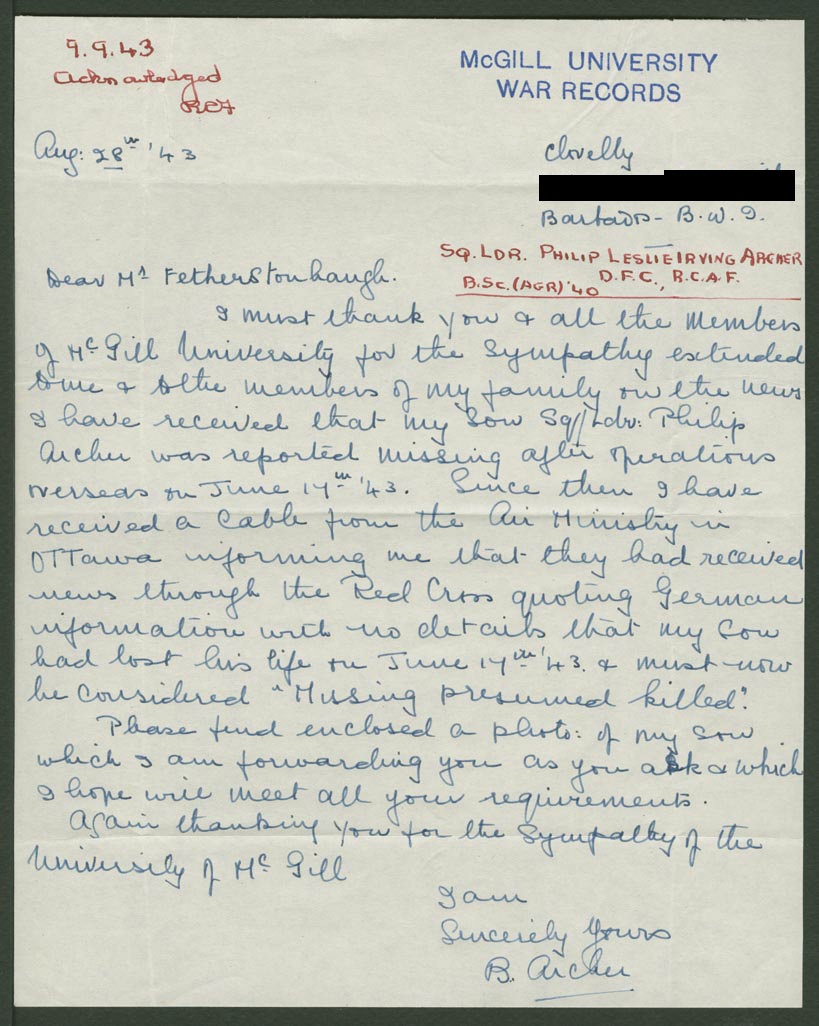 9.9.43
Acknowledged
RCF
McGILL UNIVERSITY
WAR RECORDS
Aug: 28th '43
Clovelly
Barbados - B.W.I.
SQ. LDR. PHILIP LESLIE IRVING ARCHER
B.Sc. (AGR) '40 D.F.C., R.C.A.F.
Dear Mr Fetherstonhaugh.
I must thank you & all the members
of McGill University for the Sympathy extended
to me & to the members of my family on the news
I have received that my Son Sq/Ldr: Philip
Archer was reported missing after operations
overseas on June 17th '43. Since then I have
received a Cable from the Air Ministry in
Ottawa informing me that they had received
news through the Red Cross quoting German
information with no details that my Son
had lost his life on June 17th '43 & must now
be considered "Missing presumed killed".
Please find enclosed a photo: of my Son
which I am forwarding you as you ask & which
I hope will meet all your requirements.
Again thanking you for the Sympathy of the
University of McGill
I am
Sincerely Yours
B. Archer